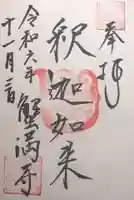 奉拝
釈迦如来
蟹満寺
令和六年
十一月二日